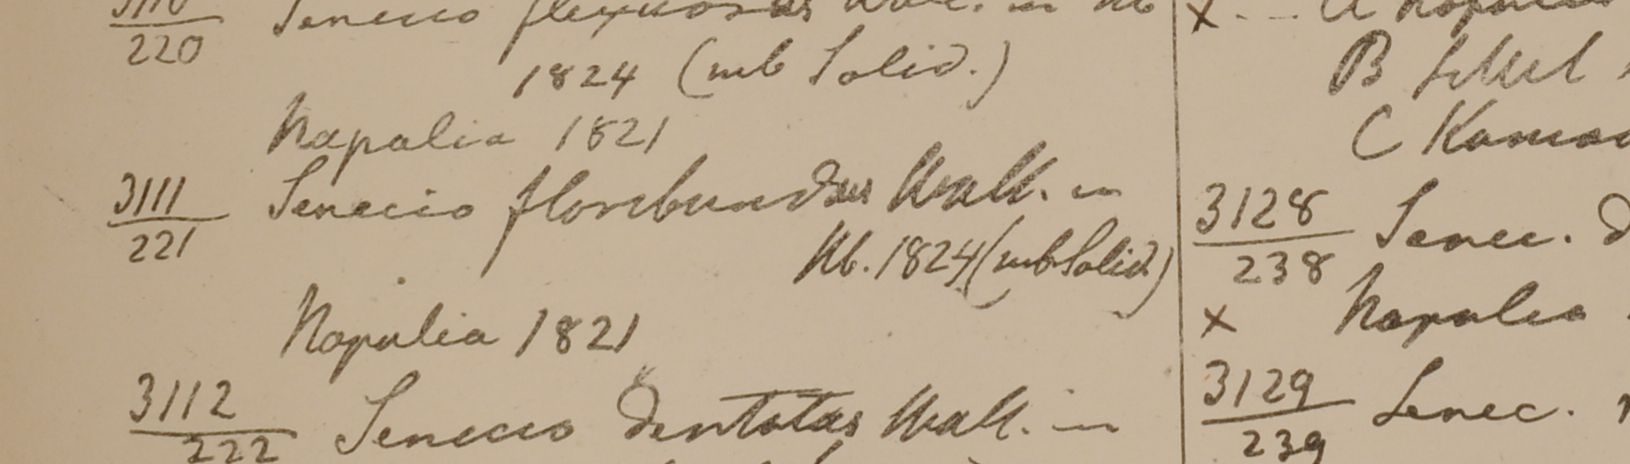 3110
220 Senecio flexuosus Wall. in Hb
1824 (sub Solid.)
Napalia 1821
3111
221 Senecio floribundus Wall. in
Hb. 1824 (sub Solid)
Napalia 1821
3112
222 Senecio dentatas Wall. in
x A Napalia
B
C Kamao
3128
238 Senec. d
x Napalia
3129
239 Senec.